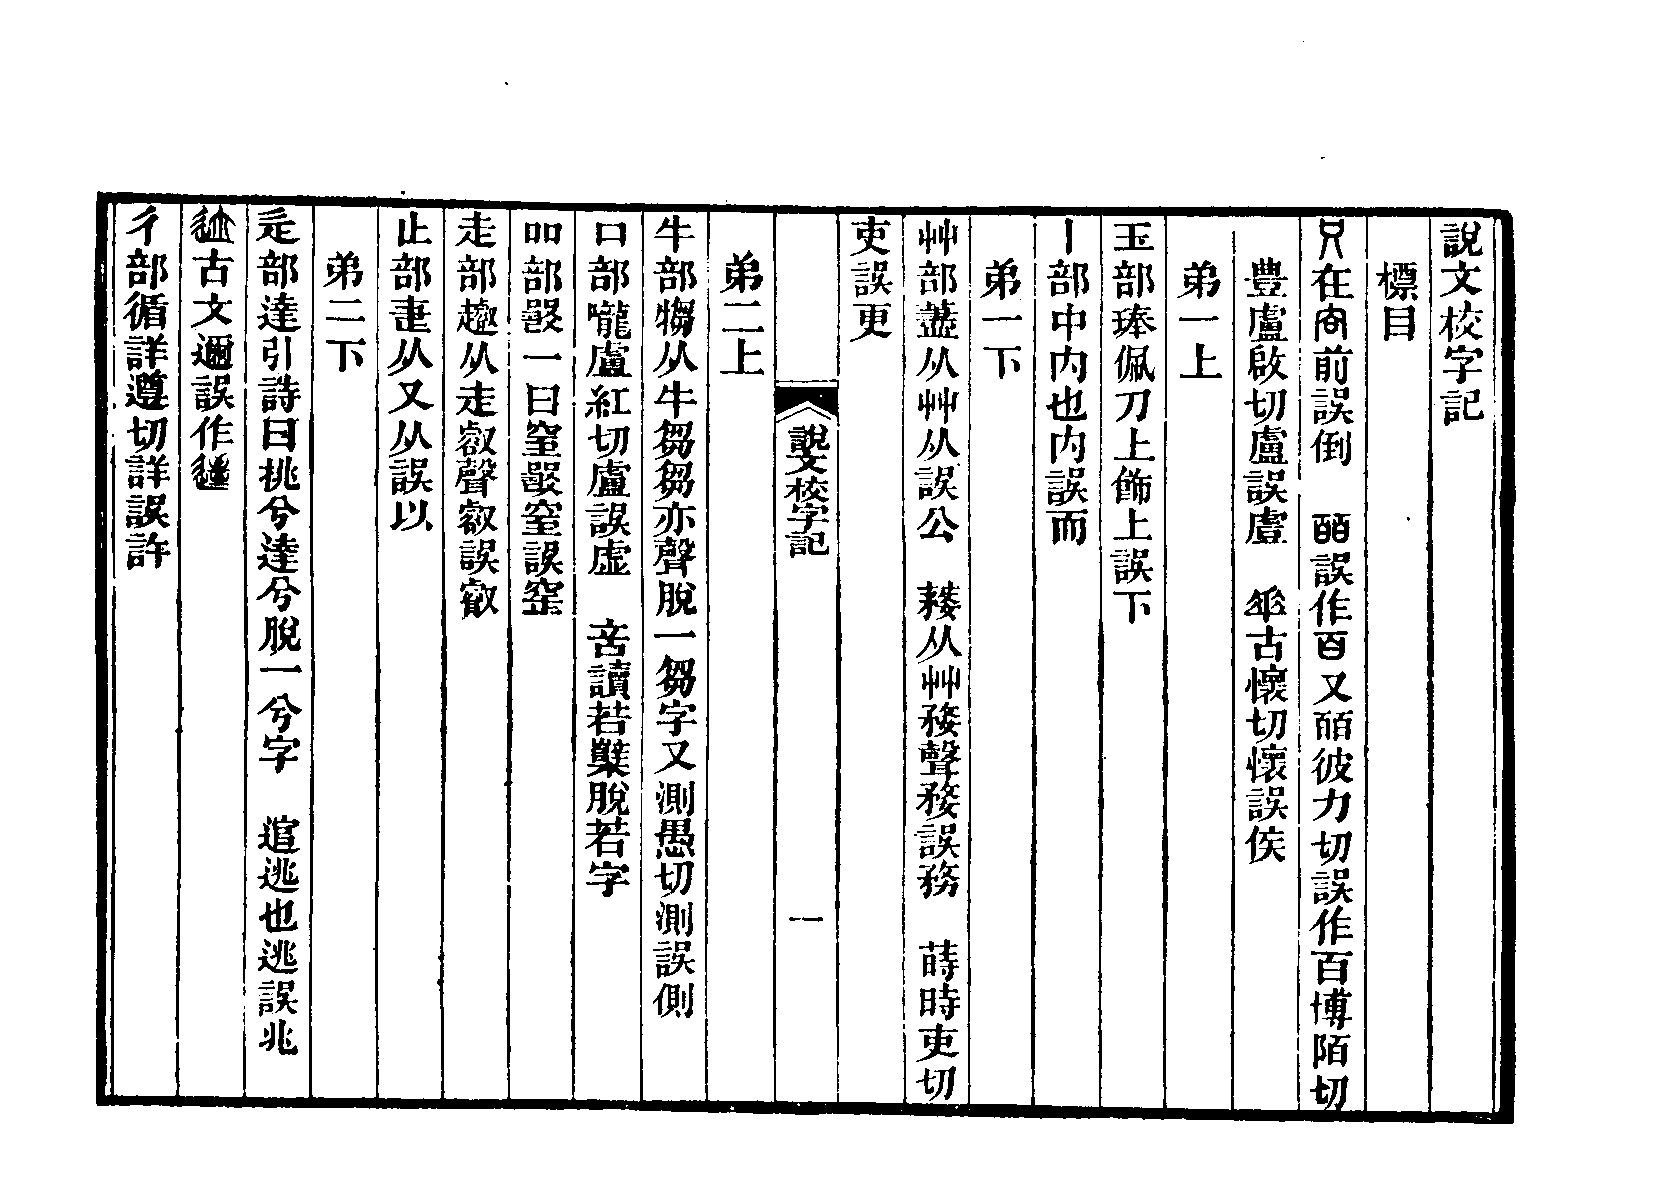 說文校字記
標目
只在㕯前誤倒　皕誤作百又皕彼力切誤作百博陌切
豊盧啟切盧誤廬　𠦬古懷切懷誤俟
弟一上
玉部琫佩刀上飾上誤下
丨部中內也內誤而
弟一下
艸部藎从艸从誤公　蓩从艸務聲務誤務　蒔時吏切
吏誤更
說文校字記
一
弟二上
牛部犓从牛芻芻亦聲脫一芻字又測愚切測誤側
口部嚨盧紅切盧誤虛　㖕讀若櫱脫若字
吅部𤕦一曰窒𤕦窒誤窐
走部趨从走㕡聲㕡誤叡
止部疌从又从誤以
弟二下
辵部達引詩曰挑兮達兮脫一兮字　逭逃也逃誤兆
古文邇誤作
彳部循詳遵切詳誤許